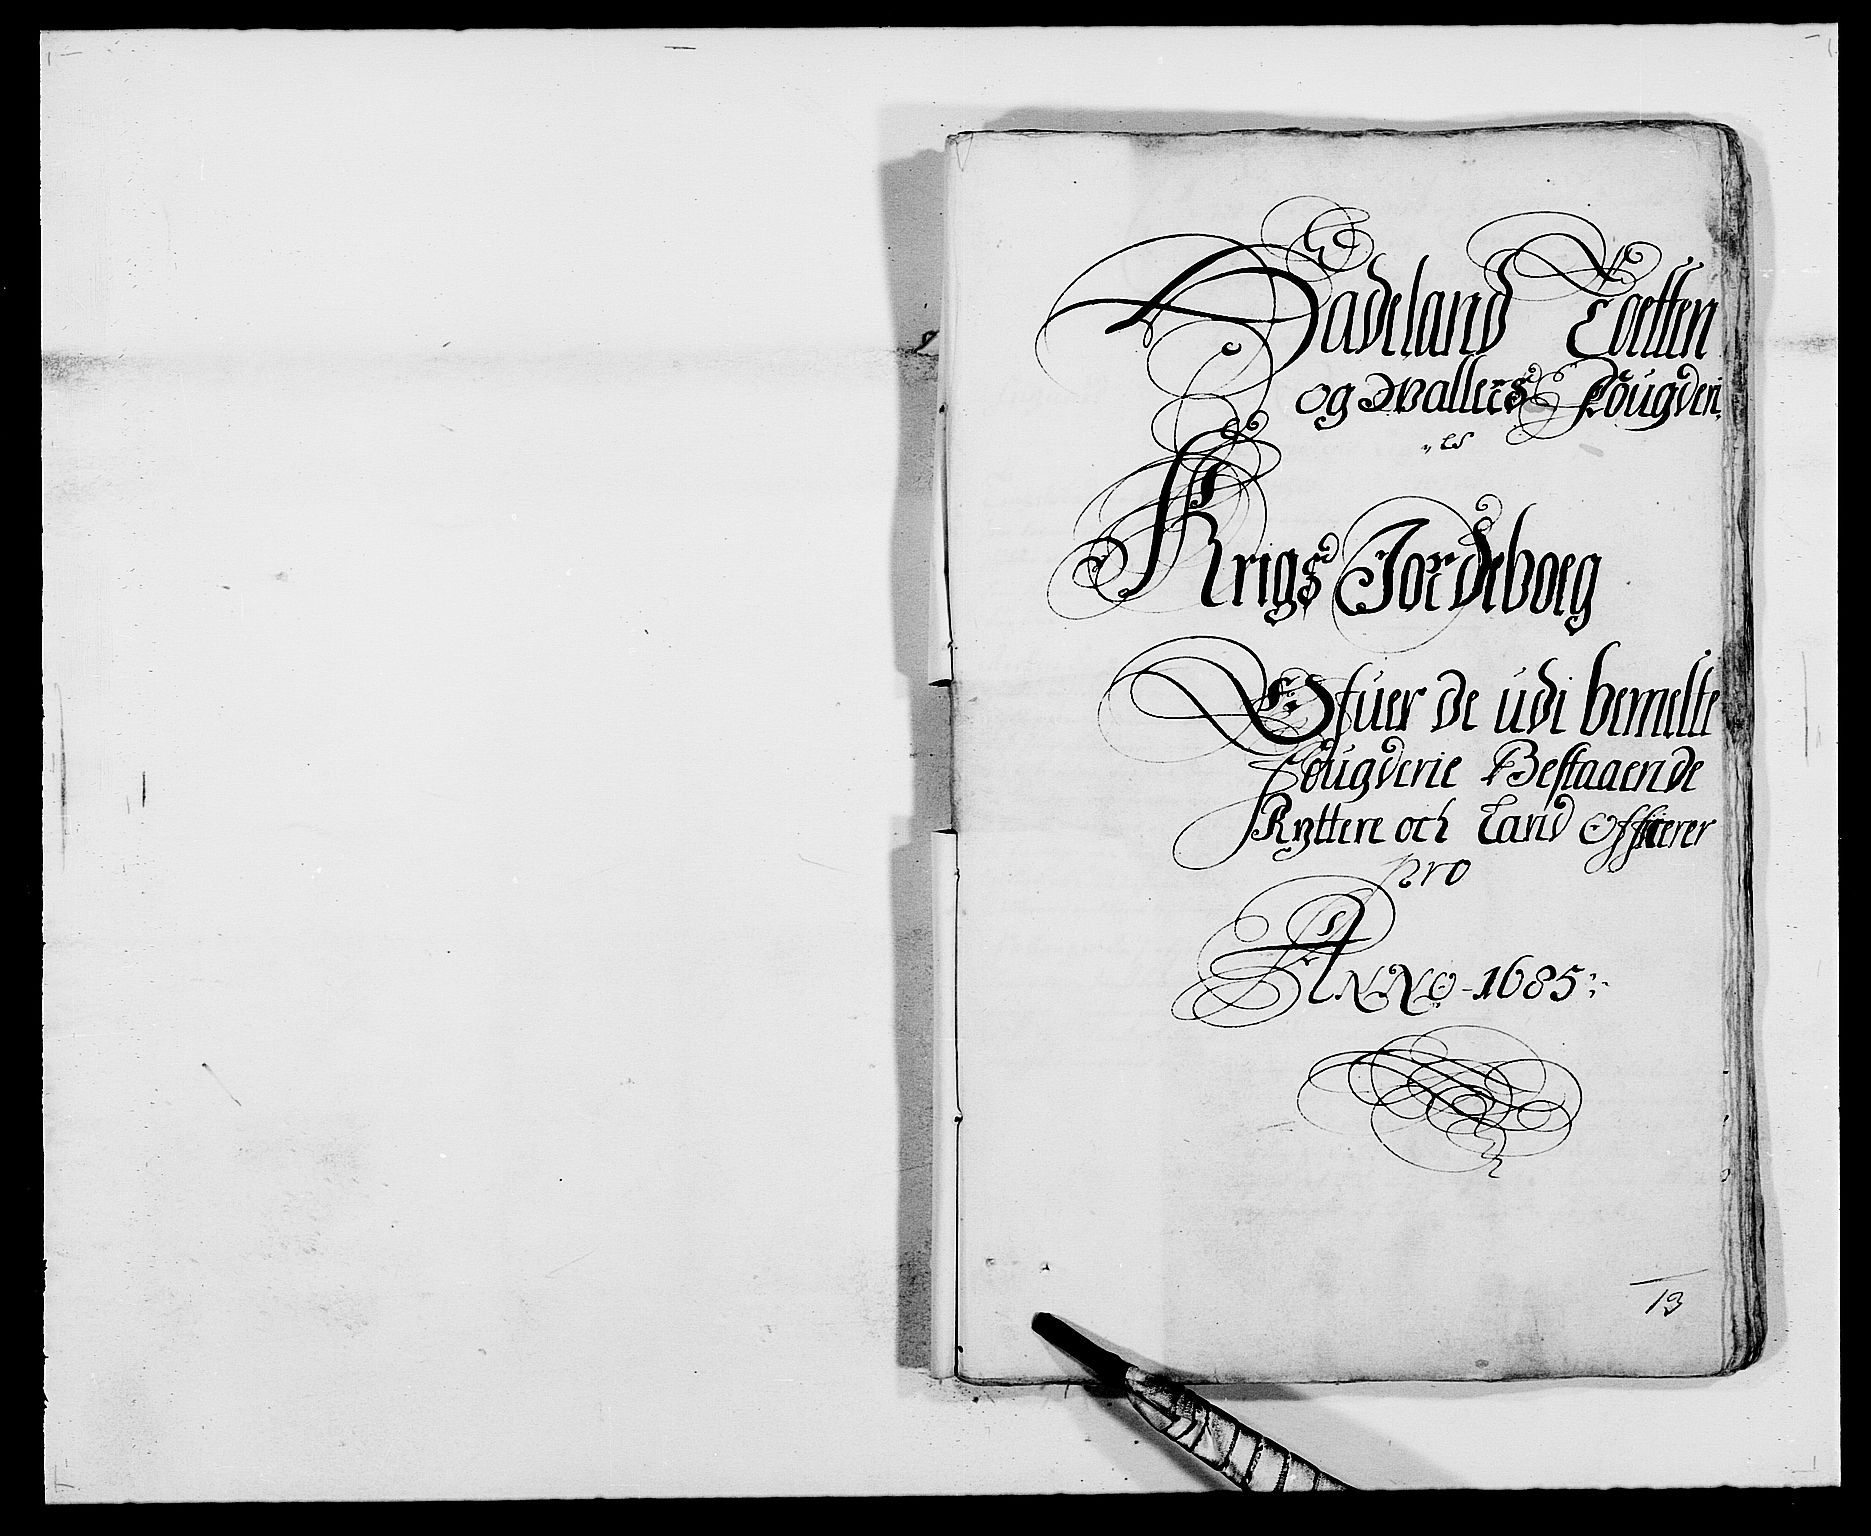 Hadeland Toetten
og Wallers Fougderi
„es
Krigs Jordeboeg
Ofuer de udi bemelte
Fougderie Bestaaende
Ryttere och Land Officerer
pro
ANNO - 1685
13